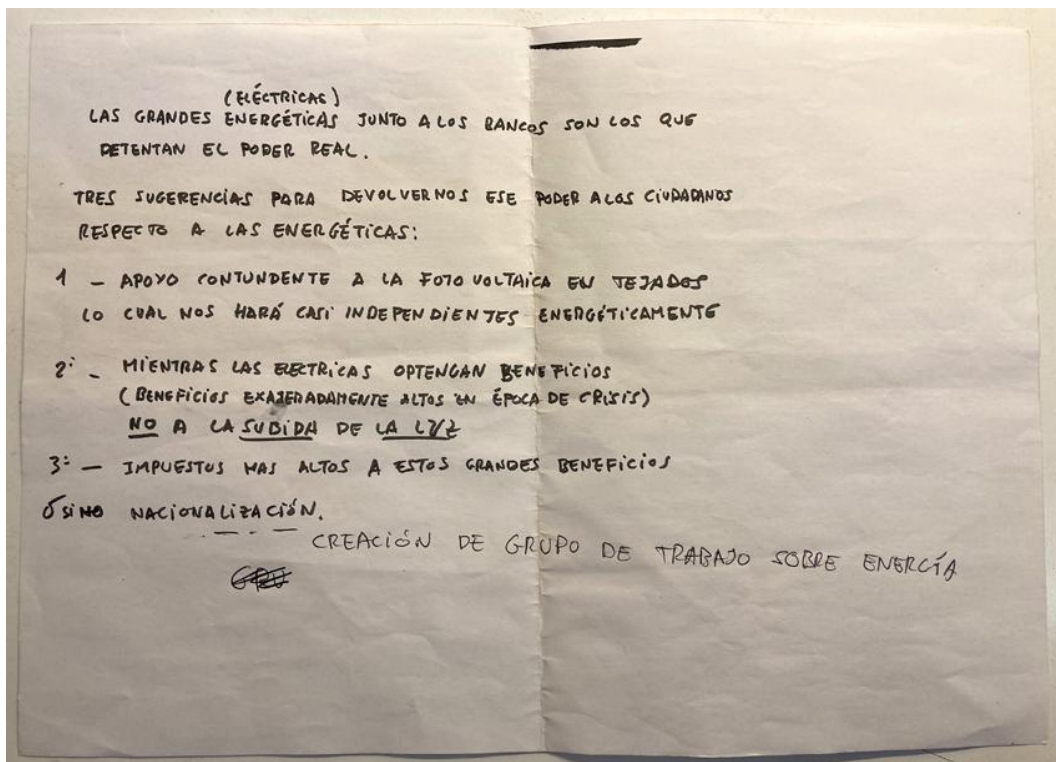 (ELÉCTRICAS)
LAS GRANDES ENERGÉTICAS JUNTO A LOS BANCOS SON LOS QUE
DETENTAN EL PODER REAL.
TRES SUGERENCIAS PARA DEVOLVERNOS ESE PODER A LOS CIUDADANOS
RESPECTO A LAS ENERGÉTICAS:
1 - APOYO CONTUNDENTE A LA FOTOVOLTAICA EN TEJADOS
LO CUAL NOS HARÁ CASI INDEPENDIENTES ENERGÉTICAMENTE
2: - MIENTRAS LAS ELECTRICAS OPTENGAN BENEFICIOS
(BENEFICIOS EXAJERADAMENTE ALTOS EN ÉPOCA DE CRISIS)
NO A LA SUBIDA DE LA LUZ
3: - IMPUESTOS MAS ALTOS A ESTOS GRANDES BENEFICIOS
Ó SINO NACIONALIZACIÓN.
CREACIÓN DE GRUPO DE TRABAJO SOBRE ENERGÍA